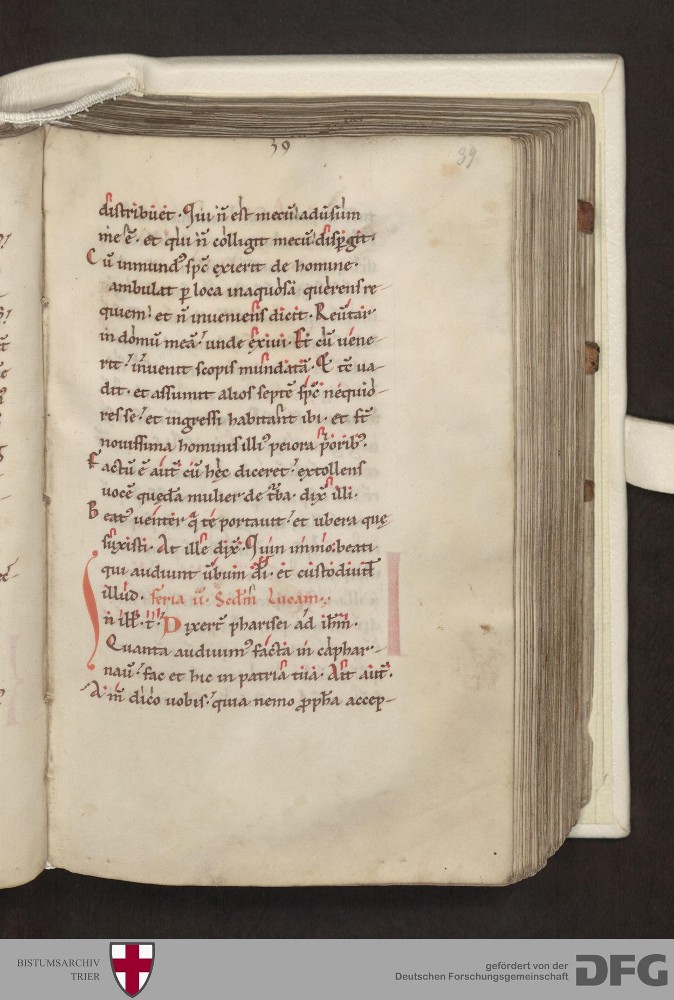 39
39
distribuet. Qui n̄ est mecū aduſū
me ē. et qui n̄ colligit mecū diſpgit.
Cū inmund᾽ ſpc̄ exierit de homine.
ambulat p loca inaquoſa querens re-
quiem. et n̄ inueniens dicit. Reūtar
in domū meā. unde exiui. Et cū uene-
rit. inuenit ſcopiſ mundatā. Et tc̄ ua-
dit. et aſſumit alioſ ſeptē ſpc̄ nequio-
reſ ſe. et ingreſſi habitant ibi. et fc̄
nouiſſima hominiſ illi᾽ peiora p̄orib᾽.
Factū ē aut̄ cū hęc diceret. extollenſ
uocē quędā mulier de t̄ba. dix̄ illi.
Beat᾽ uenter q̄ te portauit. et ubera quę
ſuxiſti. At ille dix̄. Quin immo. beati
qui audiunt ūbum dī. et cuſtodiūt
illud. feria ii. Scd̄m Lucam.
In ill̄. t̄. Dixert̄ phariſei ad ih̄m.
Quanta audiuim᾽ facta in caphar-
naū. fac et hic in patria tua. Ait aut̄.
Am̄ dico uobiſ. quia nemo ꝓph̄a accep-
BISTUMSARCHIV
TRIER
gefördert von der
Deutschen Forschungsgemeinschaft
DFG